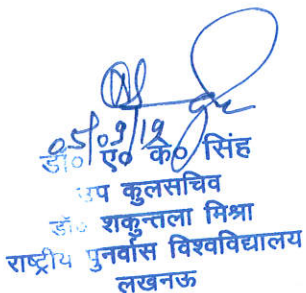 05/09/19
डॉ० ए० के० सिंह
उप कुलसचिव
डॉ० शकुन्तला मिश्रा
राष्ट्रीय पुनर्वास विश्वविद्यालय
लखनऊ